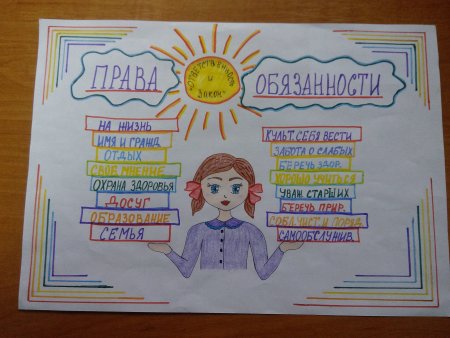 ПРАВА
"ОТВЕТСТВЕННОСТЬ
и
Закон"
ОБЯЗАННОСТИ
НА ЖИЗНЬ
ИМЯ И ГРАЖД.
ОТДЫХ
СВОЁ МНЕНИЕ
ОХРАНА ЗДОРОВЬЯ
ДОСУГ
ОБРАЗОВАНИЕ
СЕМЬЯ
КУЛЬТ. СЕБЯ ВЕСТИ
ЗАБОТА О СЛАБЫХ
БЕРЕЧЬ ЗДОР.
ХОРОШО УЧИТЬСЯ
УВАЖ. СТАРШИХ
БЕРЕЧЬ ПРИР.
СОБЛ. ЧИСТ. И ПОРЯД.
САМООБСЛУЖИВ.